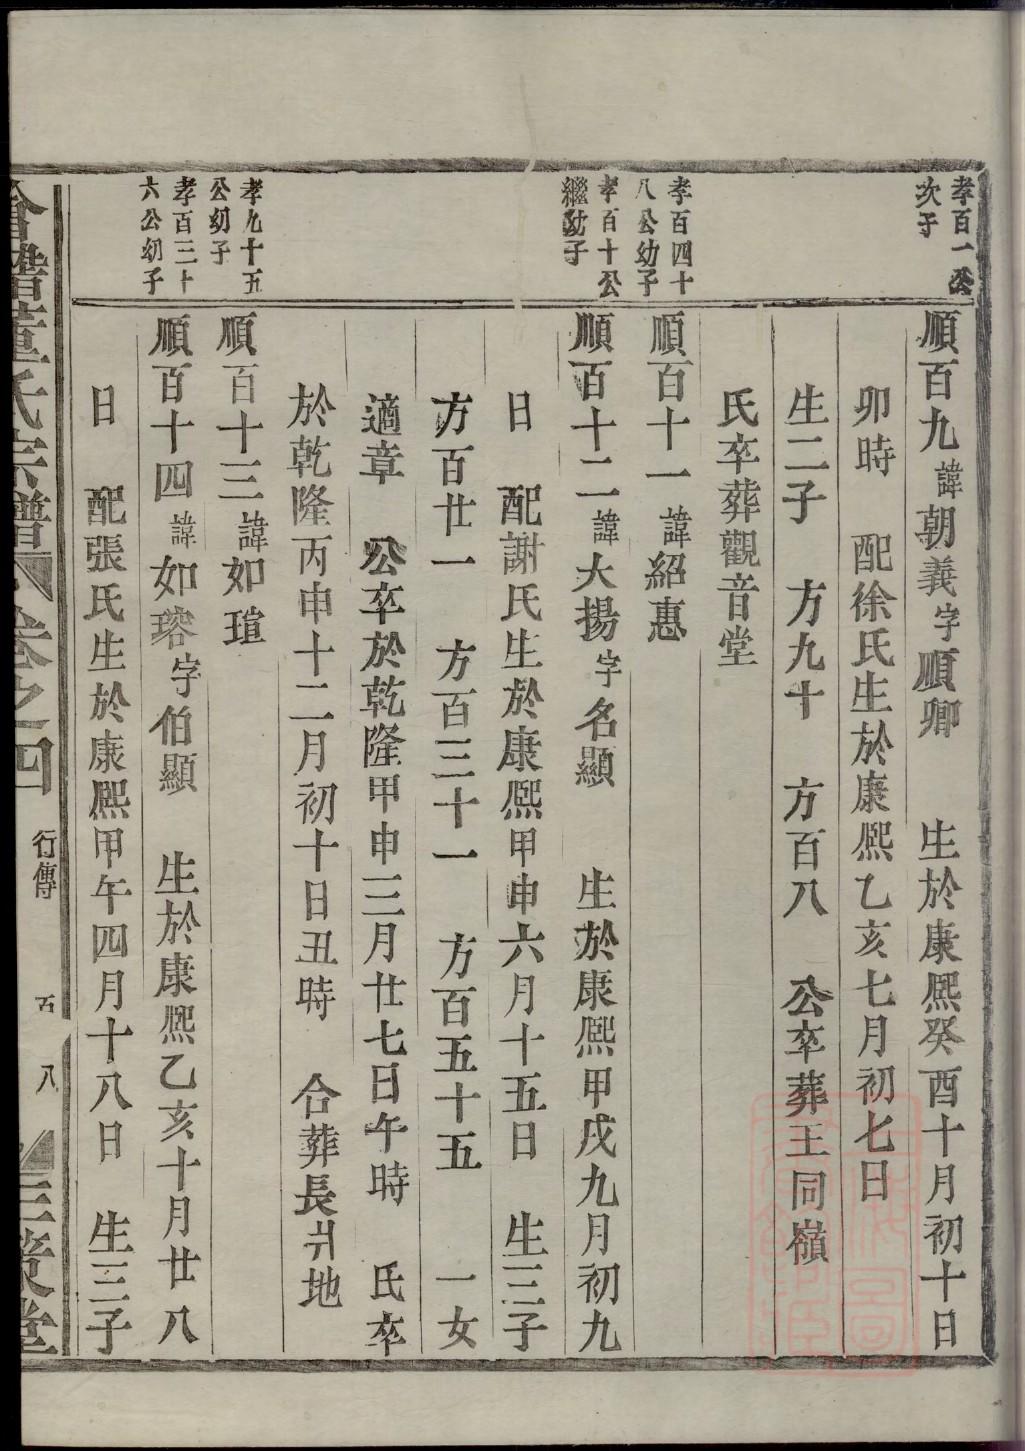 孝百一公
次子
順百九諱朝義字順卿 生於康熙癸酉十月初十日
卯時 配徐氏生於康熙乙亥七月初七日
生二子 方九十 方百八 公卒葬王同嶺
氏卒葬觀音堂
孝百四十
八公幼子
順百十一諱紹惠
孝百十公
繼幼子
順百十二諱大揚字名顯 生於康熙甲戌九月初九
日 配謝氏生於康熙甲申六月十五日 生三子
方百廿一 方百三十一 方百五十五 一女
適章 公卒於乾隆甲申三月廿七日午時 氏卒
於乾隆丙申十二月初十日丑時 合葬長爿地
孝九十五
公幼子
順百十三諱如瑄
孝百三十
六公幼子
順百十四諱如瑢字伯顯 生於康熙乙亥十月廿八
日 配張氏生於康熙甲午四月十八日 生三子
會稽董氏宗譜 卷之四 行傳 百 八 三策堂